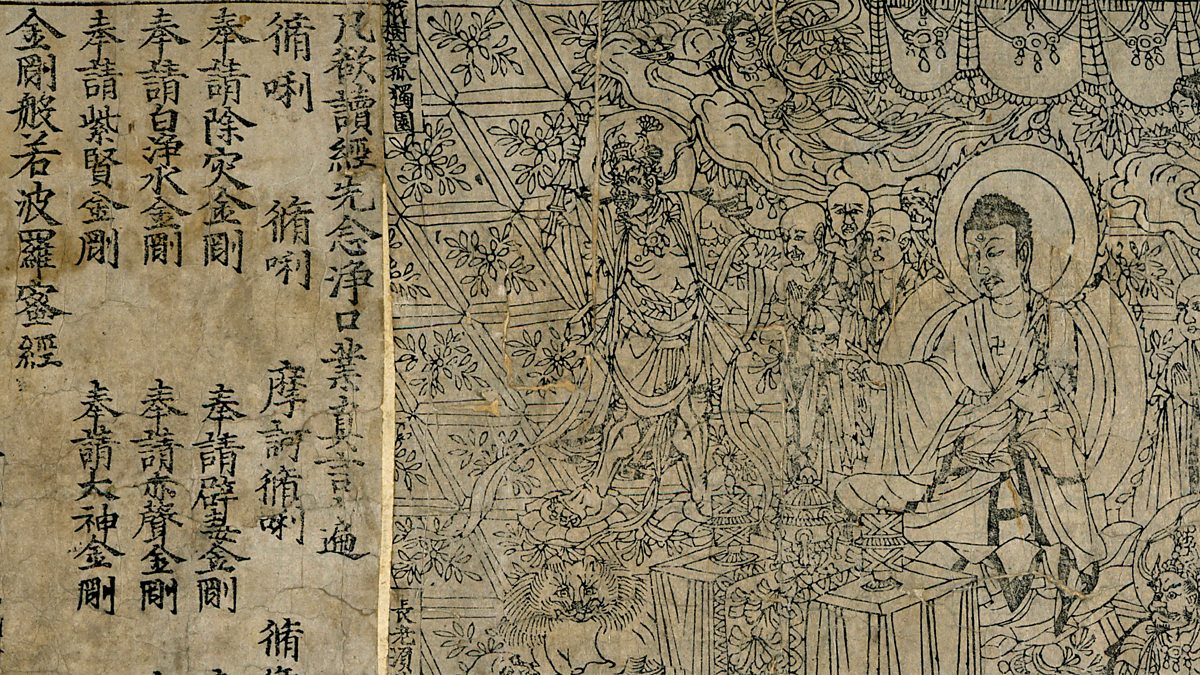 祇樹給孤獨園
長老須
凡欲讀經先念浄口業真言一遍
脩唎 脩唎 摩訶脩唎 脩
奉請除灾金剛 奉請辟毒金剛
奉請白浄水金剛 奉請赤聲金剛
奉請紫賢金剛 奉請大神金剛
金剛般若波羅蜜經